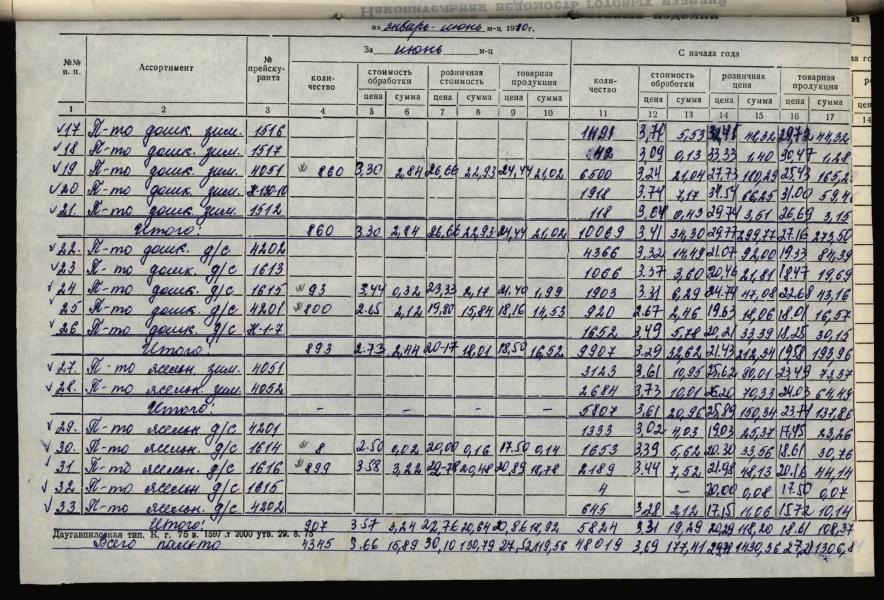 Накопительная ведомость готовых изделий
за январь-июнь м-ц 1980г.
№№ п. п. Ассортимент № прейскуранта За июнь м-ц С начала года
количество стоимость обработки розничная стоимость товарная продукция количество стоимость обработки розничная цена товарная продукция
цена сумма цена сумма цена сумма цена сумма цена сумма цена сумма
1 2 3 4 5 6 7 8 9 10 11 12 13 14 15 16 17
17 П-то дошк. зим. 1516 3,71 5,53 48,32 44,32
18 П-то дошк. зим. 1517 3,09 0,13 33.33 1.40 30.47 1.28
19 П-то дошк. зим. 4051 860 3,30 2,84 26,66 22,93 24,44 21,02 6500 3.24 21.04 27.73 180,29 25.43
20 П-то дошк. зим. 1918 3.74 7,17 34.54 66,25 31.00
21. П-то дошк. зим. 1512 118 0,43 29.74 3,51 26,69 3,15
Итого: 860 3.30 2,84 26,66 22,93 24,44 21,02 10069 3,41 34,30 29.77 299,77 27.16 273,50
22. П-то дошк. д/с 4202 4366 3,32 14,49 21.07 92,00 19.33 84,39
23 П-то дошк. д/с 1613 1066 3.37 3,60 20,46 21,81 18.47 19,69
24 П-то дошк. д/с 1615 93 3,44 0,32 23,33 2,17 21.40 1,99 1903 3.31 6,29 24.74 47,08 22.68 43,16
25 П-то дошк. д/с 4201 800 2.65 2,12 19,80 15,84 18,16 14,53 920 2.67 2,46 19.63 18,06 18.01 16,57
26 П-то дошк. д/с Н-1-7 1652 3,49 5,78 20,21 33,39 18.25 30,15
Итого: 893 2.73 2,44 20-17 18,01 18,50 16,52 9907 3.29 32,62 21.43 212,34 19.58 193,96
27. П-то ясельн. зим. 4051 3123 3,61 10,95 25,62 80,01 23.49
28. П-то ясельн. зим. 4052 2684 3,73 10,01 26.20 70,33 24.03 64,49
Итого: - - - - - - - 5807 3,61 20,96 25,89 150,34 23.74 137,86
29. П-то ясельн. д/с 4201 1333 3,02 4,03 19,03 25,37 17.45 23,26
30. П-то ясельн. д/с 1614 8 2.50 0,02 20,00 0,16 17.50 0,14 1653 3.39 5,62 20.30 33,56 18.61 30,76
31 П-то ясельн. д/с 1616 899 3.58 3,22 22-78 20,48 20.89 18,78 2189 3.44 7,52 21.98 48,13 20.16 44,14
32. П-то ясельн. д/с 1615 4 - 20,00 0,08 17.50 0,07
33. П-то ясельн. д/с 4202 645 3.28 2,12 17,15 11,06 15.72 10,14
Итого: 907 3.57 3,24 22,76 20,64 20,86 18,92 5824 3.31 19,29 20,29 118,20 18.61 108,37
Даугавпилсская тип. К. г. 75 з. 1597 .т 2000 утв. 29. 8. 75
Всего пальто 4345 3.66 15,89 30,10 130,79 27,52 119,56 48019 3,69 177,41 1430,36